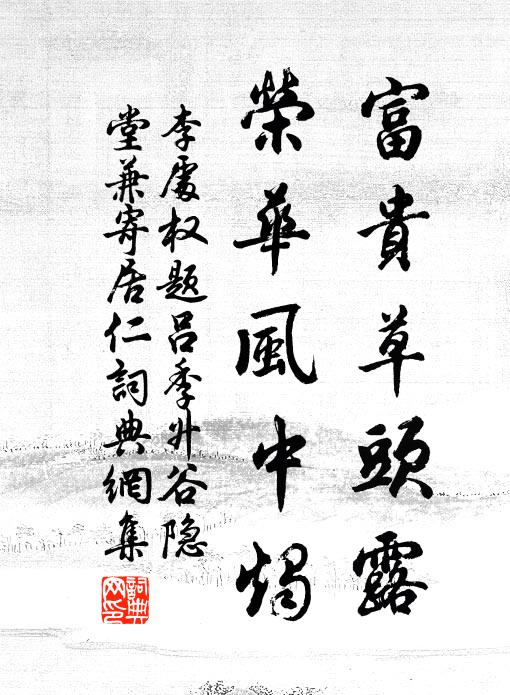 富貴草頭露
榮華風中燭
李處权题吕季升谷隐
堂兼寄居仁詞典網集
詞典
网印